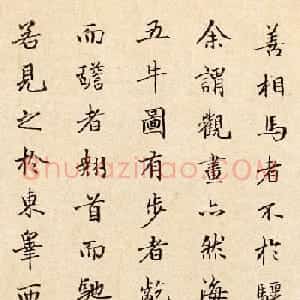 善相馬者不於驪
余謂觀畫亦然海
五牛圖有步者齕
而者首而馳
若見之於東皋西